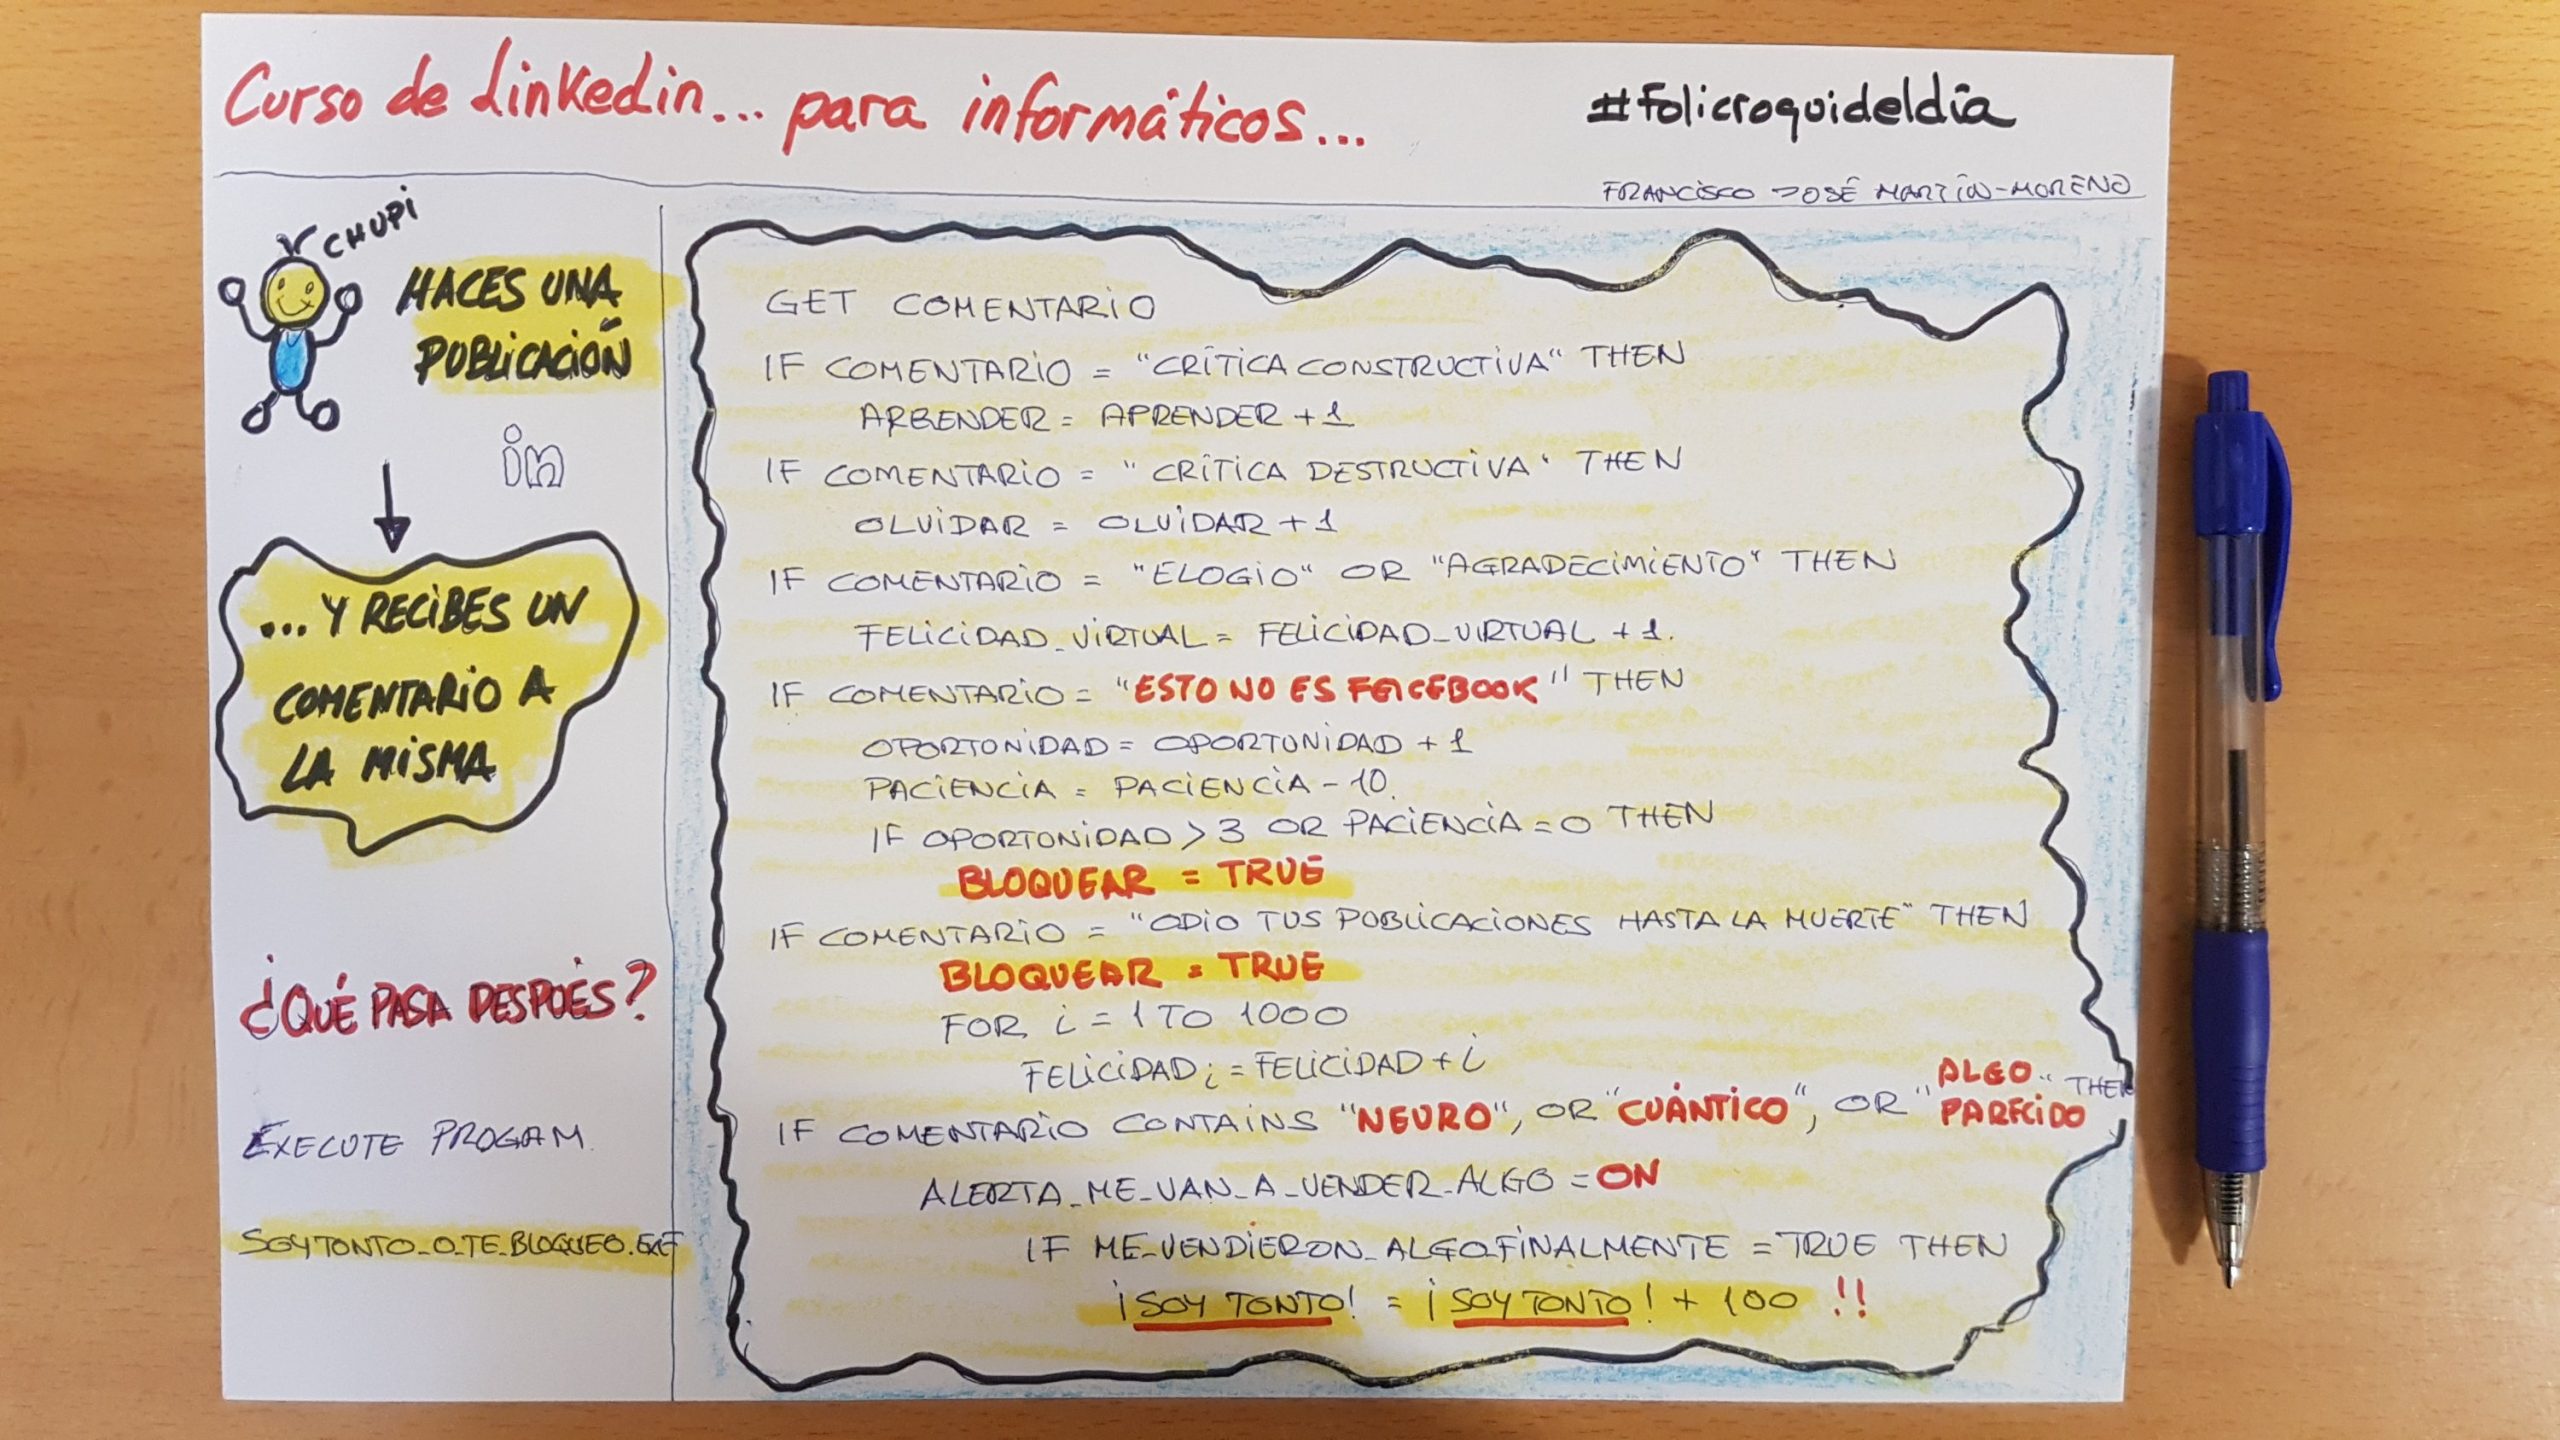 Curso de Linkedin... para informáticos...
#Folicroquideldía
FRANCISCO JOSÉ MARTÍN-MORENO
CHUPI
HACES UNA
PUBLICACIÓN
in
...Y RECIBES UN
COMENTARIO A
LA MISMA
¿QUÉ PASA DESPUÉS?
EXECUTE PROGAM
SOYTONTO_O_TE_BLOQUEO.EXE
GET COMENTARIO
IF COMENTARIO = "CRÍTICA CONSTRUCTIVA" THEN
APRENDER = APRENDER + 1
IF COMENTARIO = "CRÍTICA DESTRUCTIVA" THEN
OLVIDAR = OLVIDAR + 1
IF COMENTARIO = "ELOGIO" OR "AGRADECIMIENTO" THEN
FELICIDAD_VIRTUAL = FELICIDAD_VIRTUAL + 1.
IF COMENTARIO = "ESTO NO ES FEICEBOOK" THEN
OPORTUNIDAD = OPORTUNIDAD + 1
PACIENCIA = PACIENCIA - 10.
IF OPORTUNIDAD > 3 OR PACIENCIA = 0 THEN
BLOQUEAR = TRUE
IF COMENTARIO = "ODIO TUS PUBLICACIONES HASTA LA MUERTE" THEN
BLOQUEAR = TRUE
FOR i = 1 TO 1000
FELICIDAD i = FELICIDAD + i
IF COMENTARIO CONTAINS "NEURO", OR "CUÁNTICO", OR "ALGO PARECIDO" THEN
ALERTA_ME_VAN_A_VENDER_ALGO = ON
IF ME_VENDIERON_ALGO_FINALMENTE = TRUE THEN
¡SOY TONTO! = ¡SOY TONTO! + 100 !!